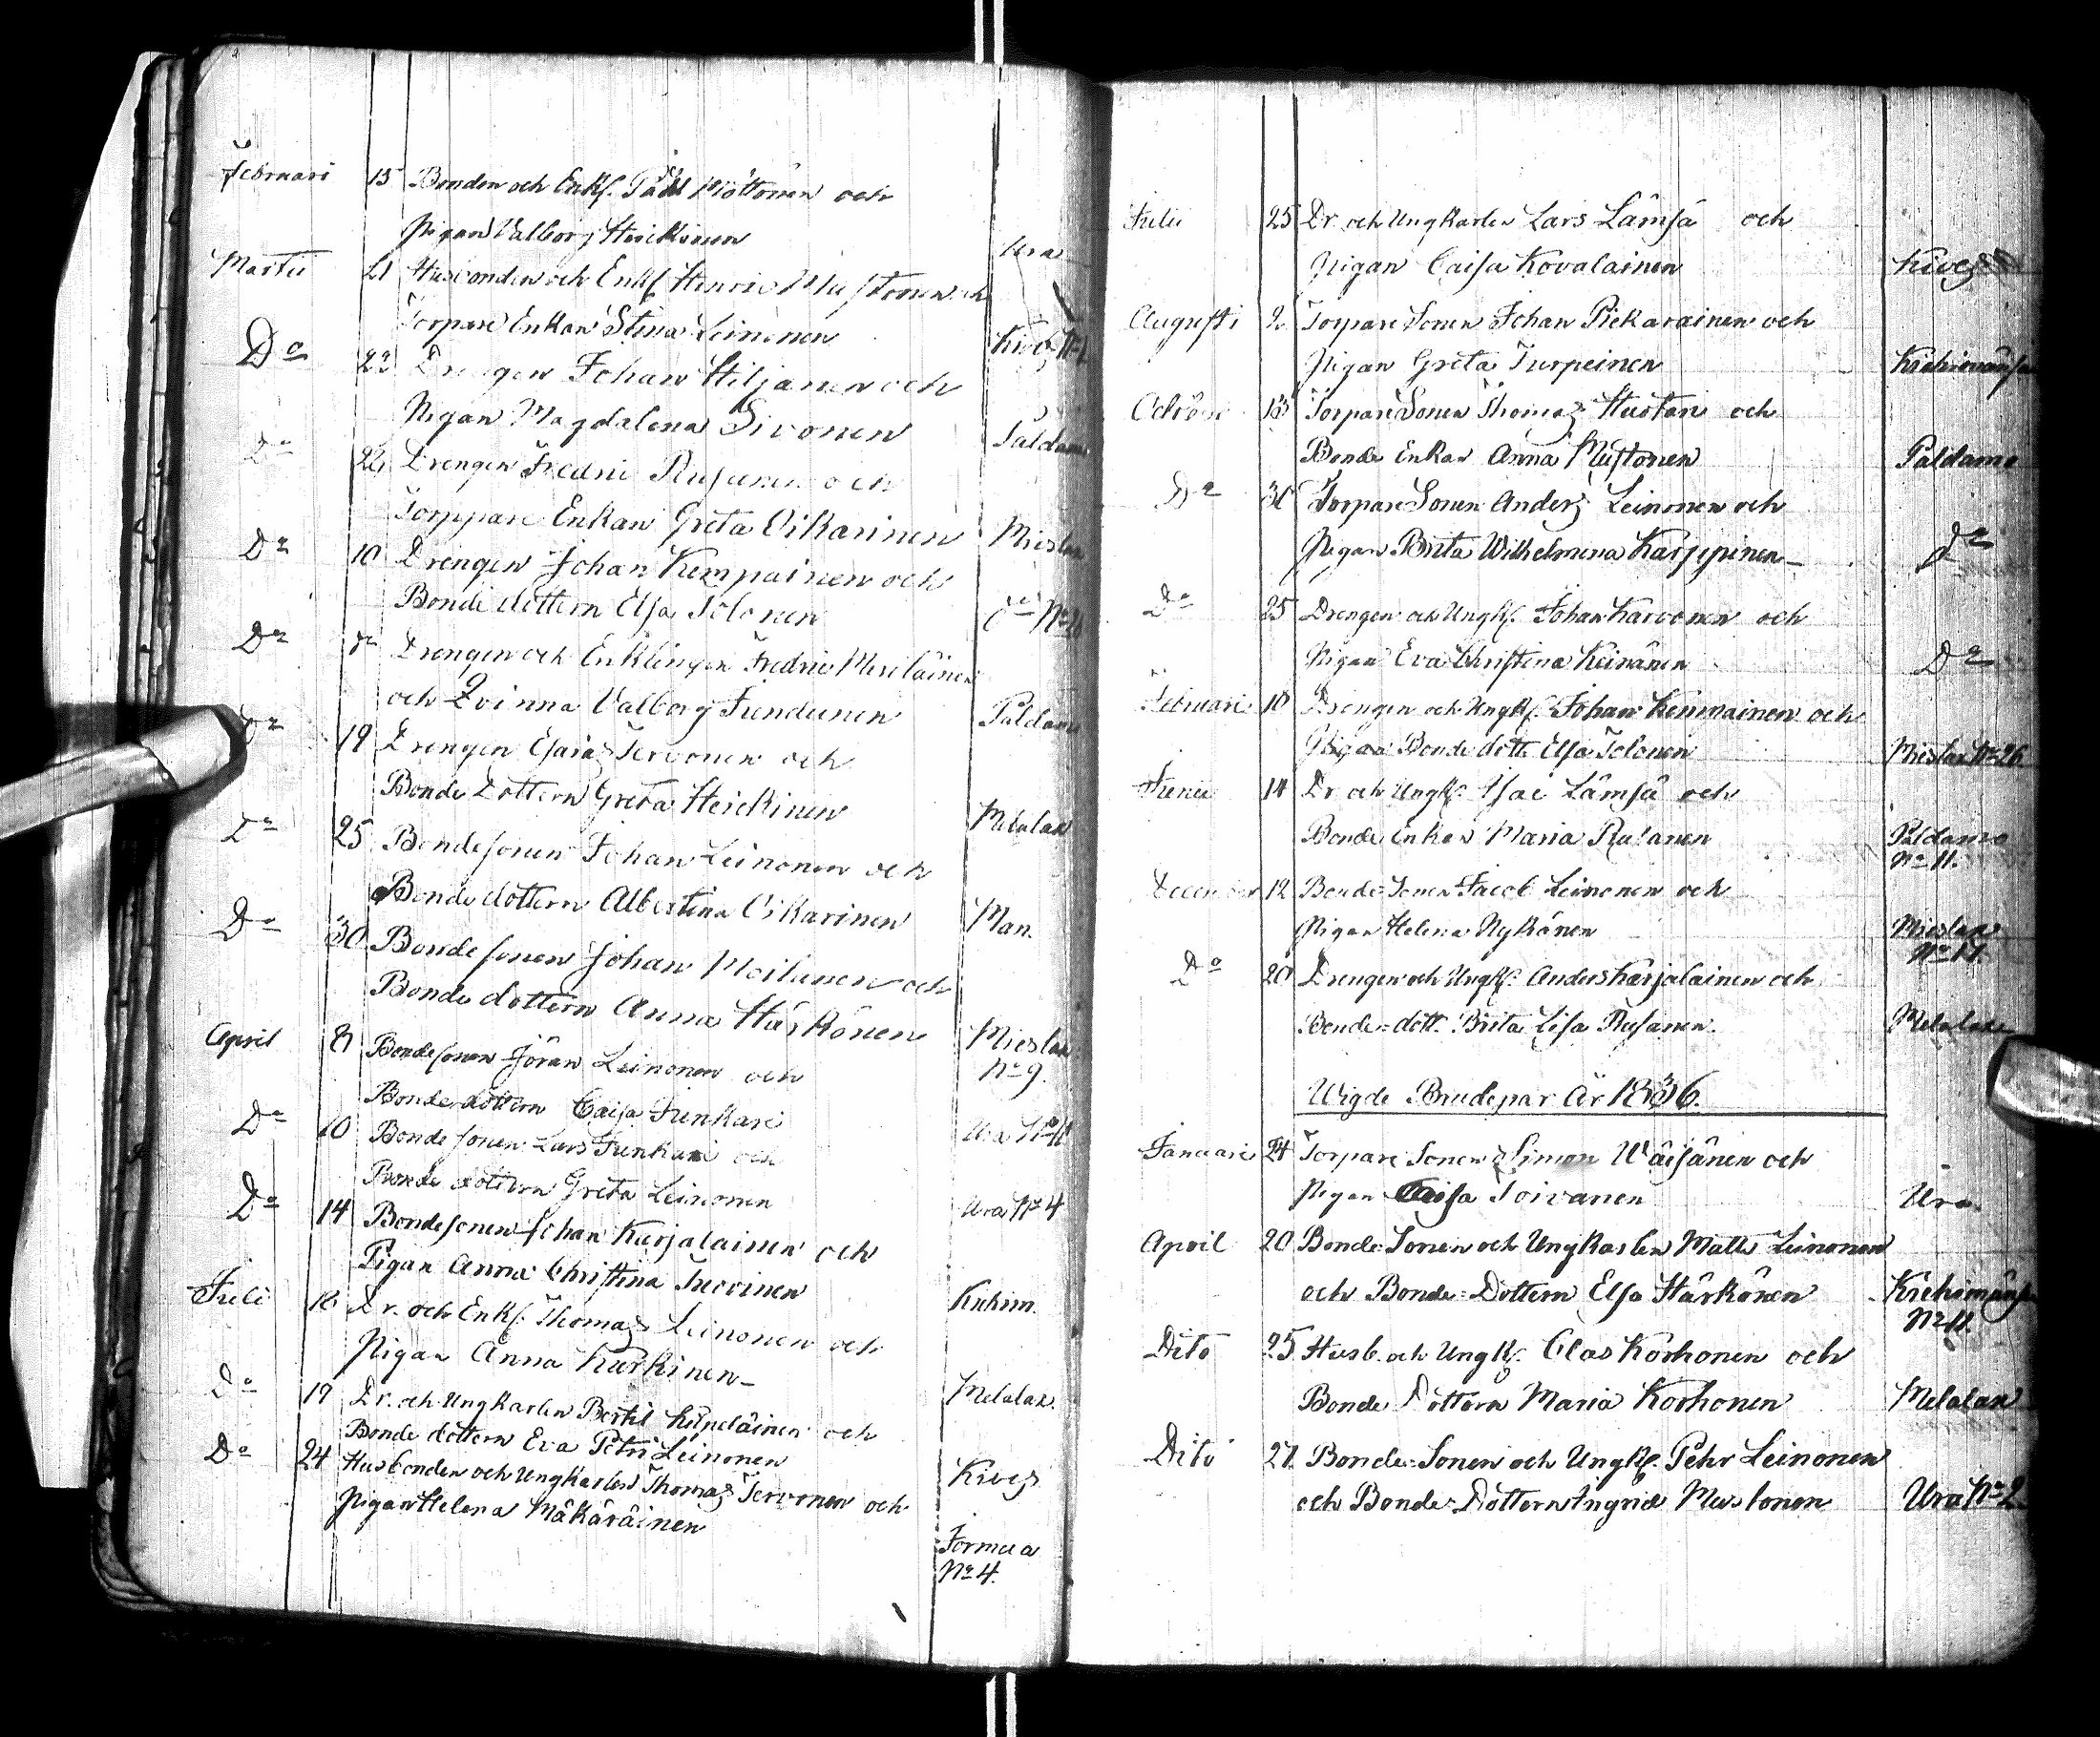 Februari 15 Bonden och Enkl. Påhl Möttönen och
Pigan Valborg Heickinen Ura
Martii 21 Husbonden och Enkl. Henric Mustonen och
Torpare Enkan Stina Leinonen
Do 22 Drengen Johan Hiljanen och
Pigan Magdalena Sivonen Paldamo
Do Drengen Fredric Rusanen och
Torppare Enkan Greta Oikarinen Mieslax
Do 10 Drengen Johan Kemppainen och
Bonde dottern Elsa Tolonen
Do do Drengen och Enklingen Fredric Meriläinen
och Qvinna Valborg Jundunen Paldamo
Do 19 Drengen Esaias Tervonen och
Bonde Dottern Greta Heickinen Melalax
Do 25 Bondesonen Johan Leinonen och
Bonde dottern Albertina Oikarinen Man.
Do 30 Bondesonen Johan Moilanen och
Bonde dottern Anna Härkönen Mieslax
No 9.
April 8 Bondesonen Jöran Leinonen och
Bondedottern Caisa Junkari Ura No 11
Do 10 Bonde sonen Lars Junkari och
Bonde dottern Greta Leinonen Ura No 4
Do 14 Bondesonen Johan Karjalainen och
Pigan Anna Christina Juvvinen Kuhim.
Juli 18 Dr. och Enkl. Thomas Leinonen och
Pigan Anna Kurkinen Melalax.
Do 19 Dr. och Ungkarlen Bertil Kilpeläinen och
Bonde dottern Eva Petri Leinonen Kives
Do 24 Husbonden och Ungkarlen Thomas Tervonen och
Pigan Helena Mäkäräinen Jormua
No 4.
Julii 25 Dr och Ungkarlen Lars Lämsä och
Pigan Caisa Kovalainen Kives
Augusti 2 Torpare Sonen Johan Piekarainen och
Pigan Greta Turpeinen Kiehimänsu
Octobr. 13 Torpare Sonen Thomas Huotari och
Bonde Enkan Anna Mustonen Paldamo
Do 30 Torpare Sonen Anders Leinonen och
Pigan Brita Wilhelmina Karppinen Do
Do 25 Drengen och Ungk. Johan Karvonen och
Pigan Eva Christina Keinänen Do
Februari 10 Drengen och Ungk. Johan Kemmainen och
Pigan Bonde dott. Elsa Tolonen Mieslax No 26
Junii 14 Dr och Ungk. Isac Lämsä och
Bonde Enkan Maria Rusanen Paldamo
No 11.
December 12 Bonde Sonen Jacob Leinonen och
Pigan Helena Nykänen Mieslax
No 17
Do 20 Drengen och Ungk. Anders Karjalainen och
Bonde=dott. Brita Lisa Rusanen. Melalax
Wigde Brudepar År 1836.
Januari 24 Torpare Sonen Simon Wäisänen och
Pigan Caisa Toivanen Ura
April 20 Bonde Sonen och Ungkarlen Matts Leinonen
och Bonde=Dottern Elsa Härkönen Kiehimänsu
No 11.
Dito 25 Husb. och Ungk. Clas Korhonen och
Bonde Dottern Maria Korhonen Melalax
Dito 27 Bonde=Sonen och Ungk. Pehr Leinonen
och Bonde=Dottern Ingrid Mustonen Ura No 2